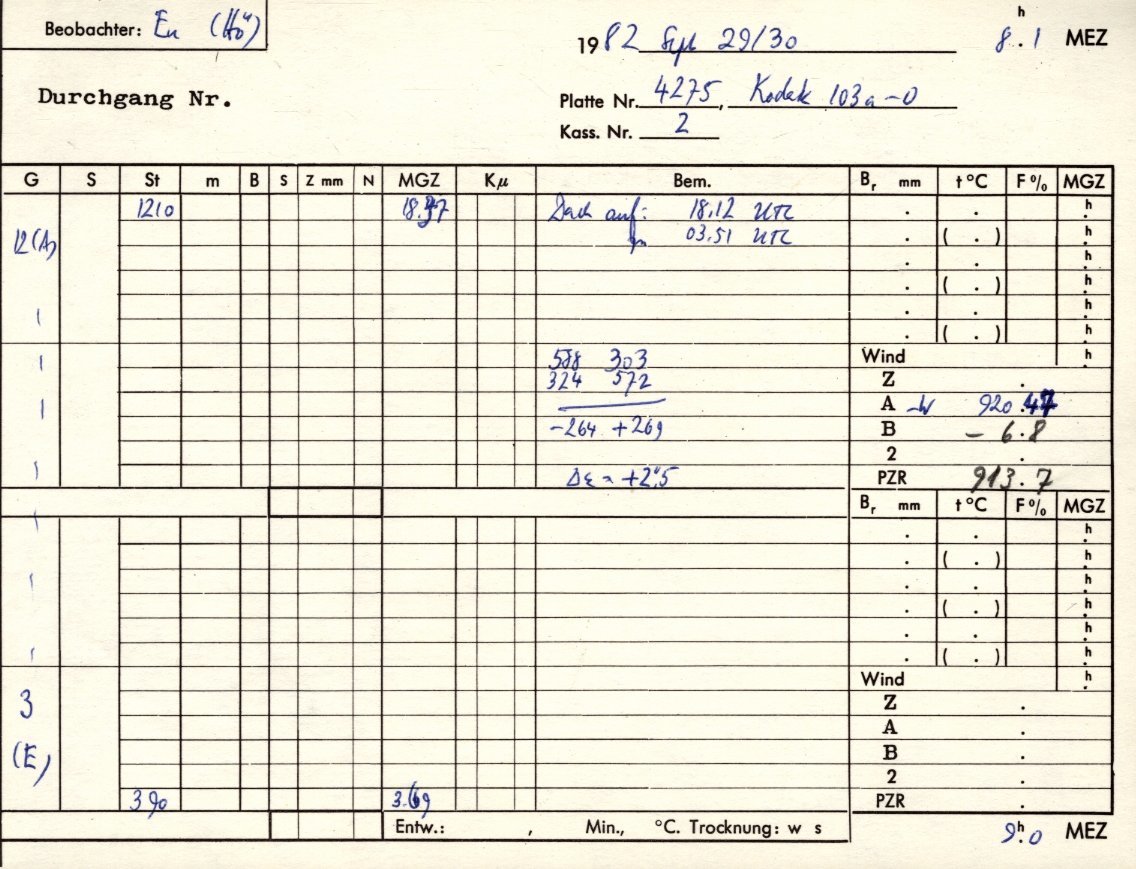 Beobachter: En (Hö)
1982 Sept 29/30
8.1 h MEZ
Durchgang Nr.
Platte Nr. 4275, Kodak 103a-O
Kass. Nr. 2
G S St m B S Z mm N MGZ Kμ Bem. Br mm t °C F% MGZ
1210 Dach auf: 18.12 UTC . . h
12 (A) 03.51 UTC . ( . ) h
. . h
. ( . ) h
. . h
. ( . ) h
588 303 Wind h
324 572 Z .
A -W 920.47
-264 +269 B - 6.8
2 .
Δε = +2".5 PZR 913.7
Br mm t °C F% MGZ
. . h
. ( . ) h
. . h
. ( . ) h
. . h
. ( . ) h
Wind h
3 Z .
A .
(E) B .
2 .
390 3.69 PZR .
Entw.: , Min., °C. Trocknung: w s
9 h.0 MEZ